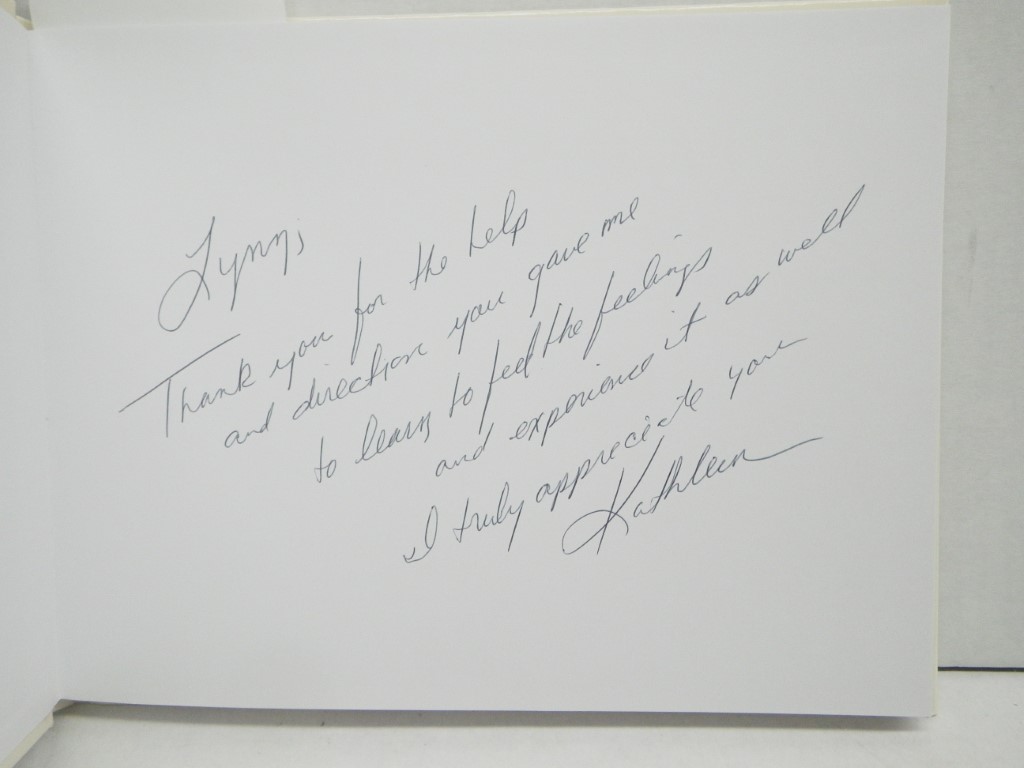 Lynn,
Thank you for the help
and direction you gave me
to learn to feel the feelings
and experience it as well
I truly appreciate you
Kathleen